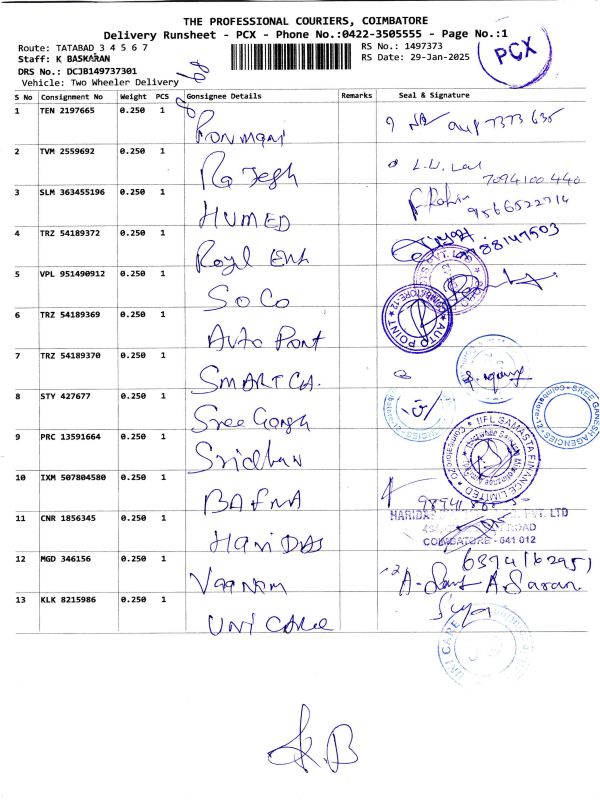 THE PROFESSIONAL COURIERS, COIMBATORE
Delivery Runsheet - PCX - Phone No.:0422-3505555 - Page No.:1
Route: TATABAD 3 4 5 6 7
RS No.: 1497373
Staff: K BASKARAN
RS Date: 29-Jan-2025
DRS No.: DCJB149737301
Vehicle: Two Wheeler Delivery
PCX
S No Consignment No Weight PCS Consignee Details Remarks Seal & Signature
1 TEN 2197665 0.250 1 Ponmani
2 TVM 2559692 0.250 1 Rajesh 7094100440
3 SLM 363455196 0.250 1 HUMED 9566522714
4 TRZ 54189372 0.250 1 Royal Enh
5 VPL 951490912 0.250 1 SoCo
6 TRZ 54189369 0.250 1 Auto Point AUTO POINT COIMBATORE-12
7 TRZ 54189370 0.250 1 SMART CA.
8 STY 427677 0.250 1 Sree Gansh SREE GANESH AGENCIES Coimbatore-12
9 PRC 13591664 0.250 1 Sridhar IIFL SAMASTA FINANCE LIMITED
10 IXM 507804580 0.250 1 BAFNA
11 CNR 1856345 0.250 1 HariDas PVT. LTD
ROAD
COIMBATORE - 641 012
12 MGD 346156 0.250 1 Vaanam A. Saran
13 KLK 8215986 0.250 1 UNI CARe UNI CARE
K.B